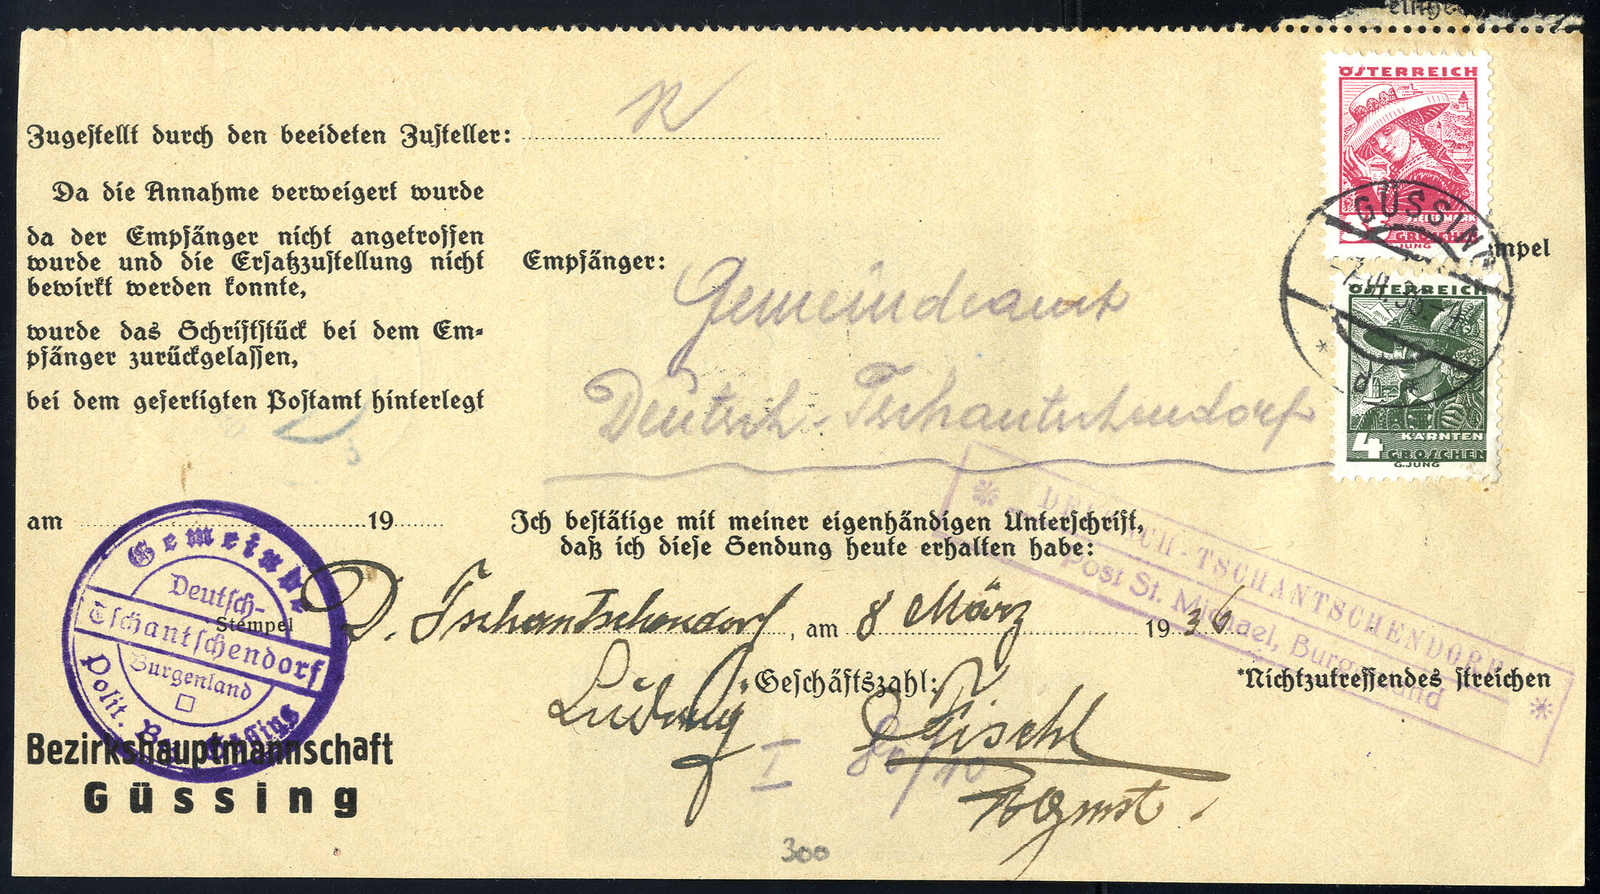 R
Zugestellt durch den beeideten Zusteller:
Da die Annahme verweigert wurde
da der Empfänger nicht angetroffen
wurde und die Ersatzzustellung nicht
bewirkt werden konnte,
wurde das Schriftstück bei dem Em-
pfänger zurückgelassen,
bei dem gefertigten Postamt hinterlegt
am 19
Empfänger:
Gemeindeamt
Deutsch-Tschantschendorf
ÖSTERREICH
STEIERMARK
GROSCHEN
JUNG
ÖSTERREICH
KÄRNTEN
4 GROSCHEN
G. JUNG
GÜSSING
d
mpel
DEUTSCH-TSCHANTSCHENDORF
Post St. Michael, Burgenland
Ich bestätige mit meiner eigenhändigen Unterschrift,
daß ich diese Sendung heute erhalten habe:
D. Tschantschendorf, am 8 März 1936
Geschäftszahl:
*Nichtzutreffendes streichen
Ludwig
I 80/10
Gemeinde
Deutsch-
Tschantschendorf
Burgenland
Polit. Bez. Güssing
Stempel
Bezirkshauptmannschaft
Güssing
300